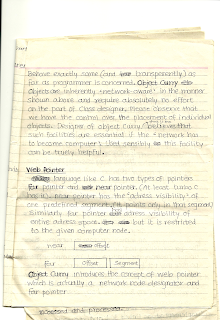 Behave exactly same (and transparently) as
far as programmer is concerned. Object Curry
Objects are inherently network aware in the manner
shown above and require absolutely no effort
on the part of Class designer. Please observe that
we have the control over the placement of individual
objects. Designer of object Curry believes that
such facilities are essential if the network has
to become computer. Used sensibly this facility
can be truely helpful.
Web Pointer
language like C has two types of pointers
far pointer and near pointer. (At least Turbo C
has it). near pointer has the address visibility of
one predefined segment (it points only in that segment)
Similarly far pointer address visibility of
entire address space but it is restricted
to the given computer node.
near Offset
Far Offset Segment
Object Curry introduces the concept of web pointer
which is actually a network node designator and
far pointer.